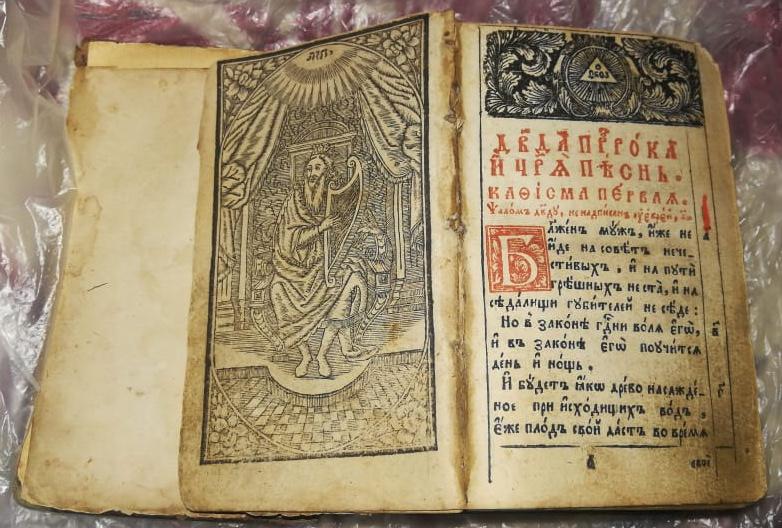 Ѻ
БОГЪ
ДВ҃ДА ПРⷪ҇РО́КА
И҆ ЧРѦ̀ ПѢ́СНЬ.
КАѲІ́СМА ПЕ́РВАѦ.
Ѱало́мъ дв҃ду, не надпи́санъ ᲂу҆ є҆врє́й, а҃
Б
ла́женъ мꙋ́жъ, и҆́же не
и҆́де на совѣ́тъ нече-
сти́выхъ, и҆ на пꙋтѝ
грѣ́шныхъ не ста̀, и҆ на
сѣда́лищи гꙋби́телей не сѣ́де:
а҃
Но въ зако́нѣ гдⷭ҇ни во́ля є҆гѡ̀,
и҆ въ зако́нѣ є҆гѡ̀ поꙋчи́тся
де́нь и҆ но́щь.
в҃
И҆ бꙋ́детъ ꙗ҆́кѡ дре́во насажде́-
ное при и҆схо́дищихъ во́дъ,
є҆́же пло́дъ сво́й да́стъ во вре́мѧ
г҃
своѐ